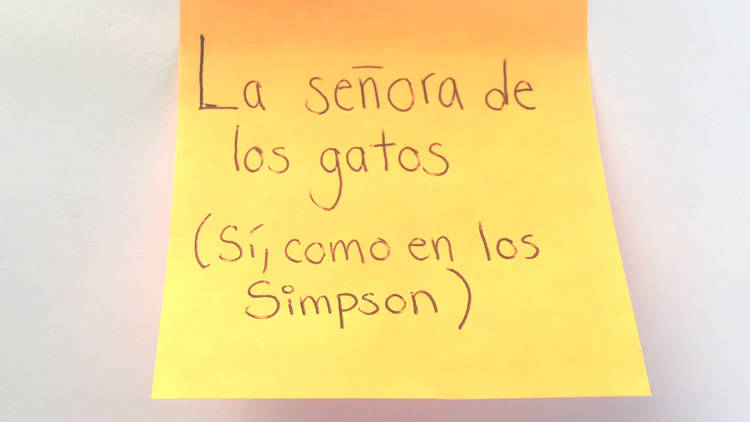 La señora de
los gatos
(Sí, como en los
Simpson)